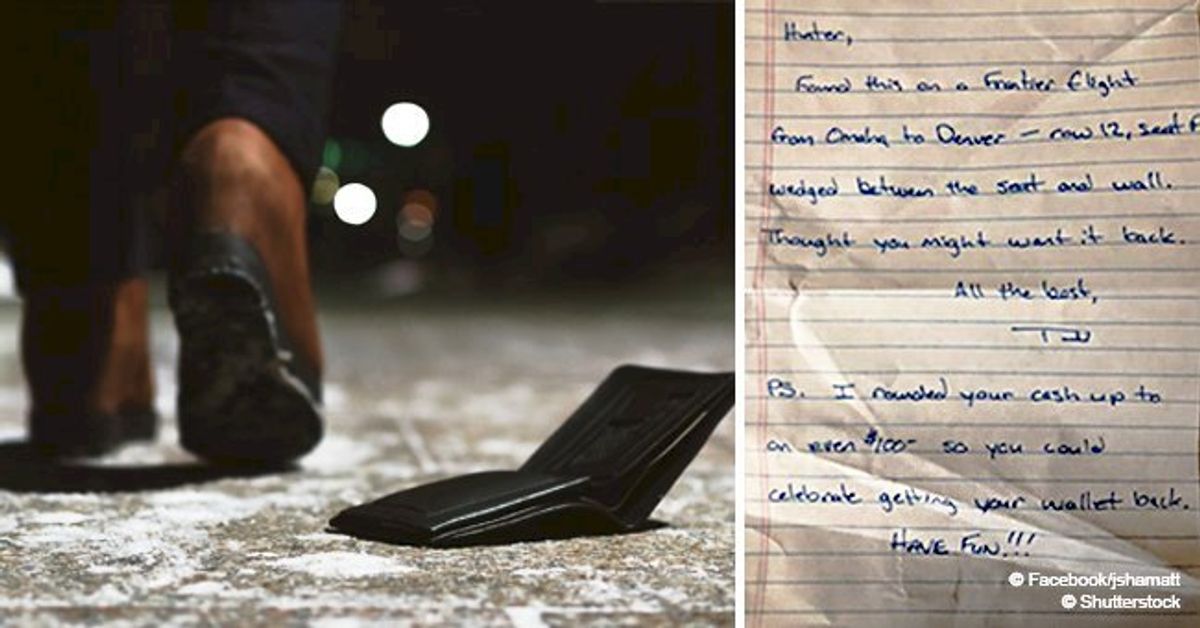 Hunter,
Found this on a Frontier flight
from Omaha to Denver – row 12, seat F
wedged between the seat and wall.
Thought you might want it back.
All the best,
PS. I rounded your cash up to
an even $100- so you could
celebrate getting your wallet back.
HAVE FUN!!!
© Facebook/jshamatt
© Shutterstock